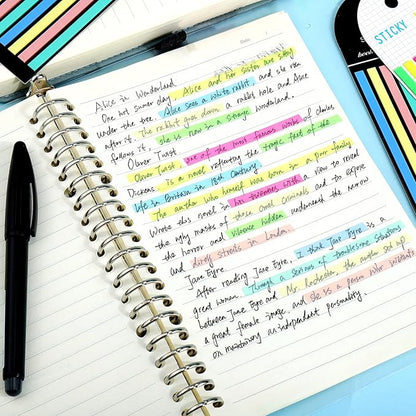 STICKY
Alice in Wonderland
One hot summer day, Alice and her sister are sitting
under the tree. Alice sees a white rabbit, and she runs
after it. The rabbit goes down a rabbit hole and Alice
follows it. she is now in a strange wonderland.
Oliver Twist
Oliver Twist, one of the most famous works of Charles
Dickens, is a novel reflecting the tragic fact of the
life in Britain in 18th Century.
The author who himself was born in a poor family
wrote this novel in his twenties with a view to reveal
the ugly masks of those cruel criminals and to expose
the horror and violence hidden underneath the narrow
and dirty streets in London.
Jane Eyre
After reading Jane Eyre, I think Jane Eyre is a
great woman. Through a series of troublesome situations
between Jane Eyre and Mr. Rochester, the author set up
a great female image, and she is a person who
on maintaining an independent personality.